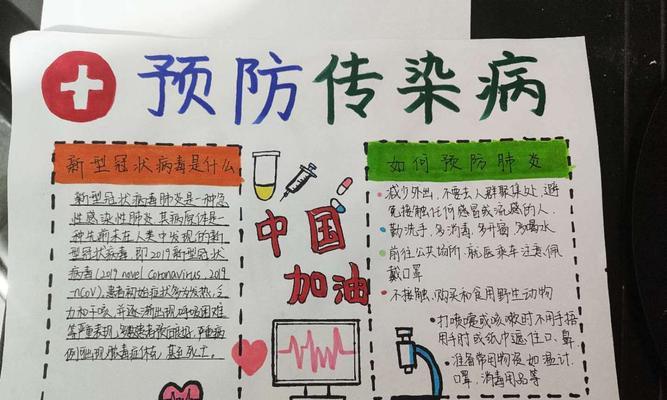 预防传染病
新型冠状病毒是什么
新型冠状病毒肺炎是一种急
性感染性肺炎,其病原体是一
种先前未在人类中发现的新
型冠状病毒,即2019新型冠状
病毒(2019 novel Coronavirus, 2019
-nCoV),患者初始症状多为发热、乏
力和干咳,并逐渐出现呼吸困难
等严重表现。多数患者预后良好,严重病
例出现脓毒症休克,甚至死亡。
中国
加油
如何预防肺炎
减少外出,不要去人群聚集处,避
免接触任何感冒或流感的人.
勤洗手,多消毒,多开窗,多喝水
前往公共场所,就医乘车注意佩
戴口罩
不接触、购买和食用野生动物
打喷嚏或咳嗽时不用手捂
用手肘或纸巾遮住口、鼻
准备常用物资如温计,
口罩,消毒用品等